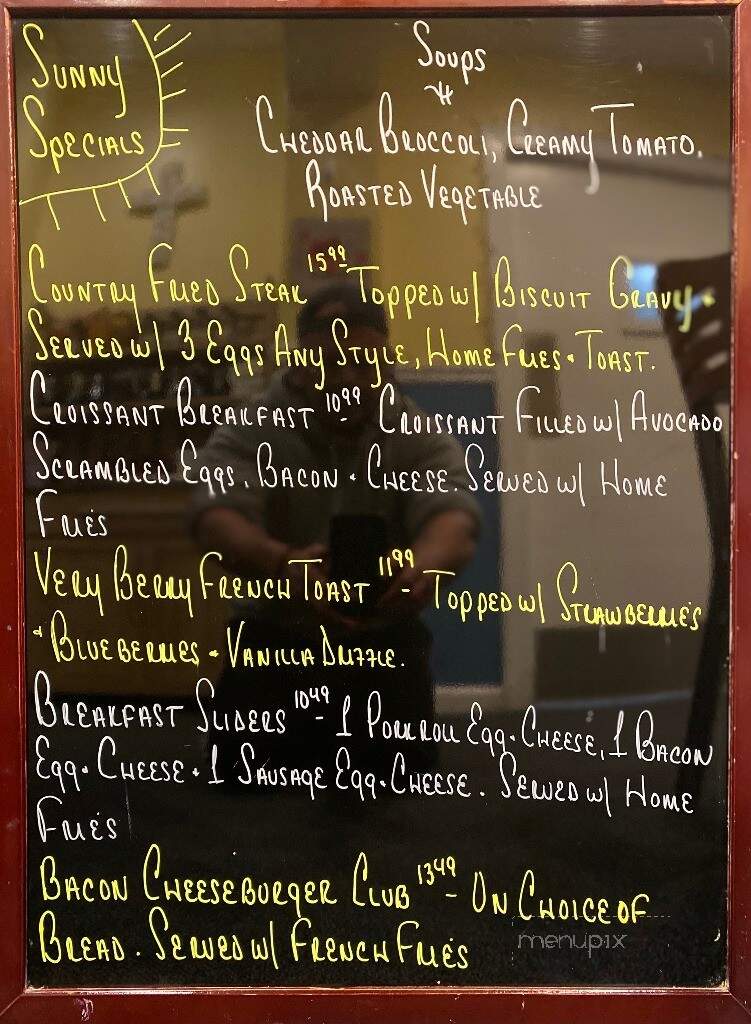 Sunny
Specials
Soups
Cheddar Broccoli, Creamy Tomato,
Roasted Vegetable
Country Fried Steak 15.99 Topped w/ Biscuit Gravy.
Served w/ 3 Eggs Any Style, Home Fries + Toast.
Croissant Breakfast 10.99 Croissant Filled w/ Avocado
Scrambled Eggs, Bacon + Cheese. Served w/ Home
Fries
Very Berry French Toast 11.99 - Topped w/ Strawberries
+ Blueberries + Vanilla Drizzle.
Breakfast Sliders 10.49 - 1 Pork roll Egg + Cheese, 1 Bacon
Egg + Cheese + 1 Sausage Egg + Cheese. Served w/ Home
Fries
Bacon Cheeseburger Club 13.49 - On Choice of
Bread. Served w/ French Fries
menupix